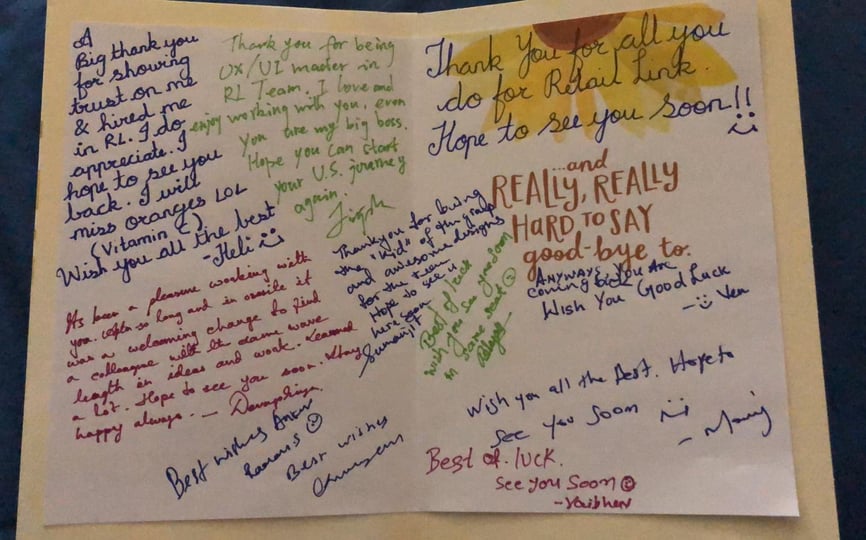 A
Big thank you
for showing
trust on me
& hired me
in RL. I do
appreciate. I
hope to see you
back. I will
miss oranges LOL
(Vitamin C)
Wish you all the best
- Heli
Thank you for being
UX/UI master in
RL Team. I love and
enjoy working with you, even
you are my big boss.
Hope you can start
your U.S. journey
again.
Jignesh
As been a pleasure working with
you. After so long and in onsite it
was a welcoming change to find
a colleague with the same wave
length in ideas and work. Learned
a lot. Hope to see you soon. Stay
happy always. -
Thank you for being
the "kid" of the group
and awesome designs
for the team
Hope to see u
here soon
Best wishes
Best wishes
Thank You for all you
do for Retail Link.
Hope to see you soon!!
...and
REALLY, REALLY
HARD TO SAY
good-bye to.
ANYWAYS, YOU ARE
coming back
Wish You Good Luck
- Ven
Best of luck
wish you see you soon
in same seat
Wish you all the Best. Hope to
see you soon
- Manoj
Best of luck.
see you soon
- Vaibhav